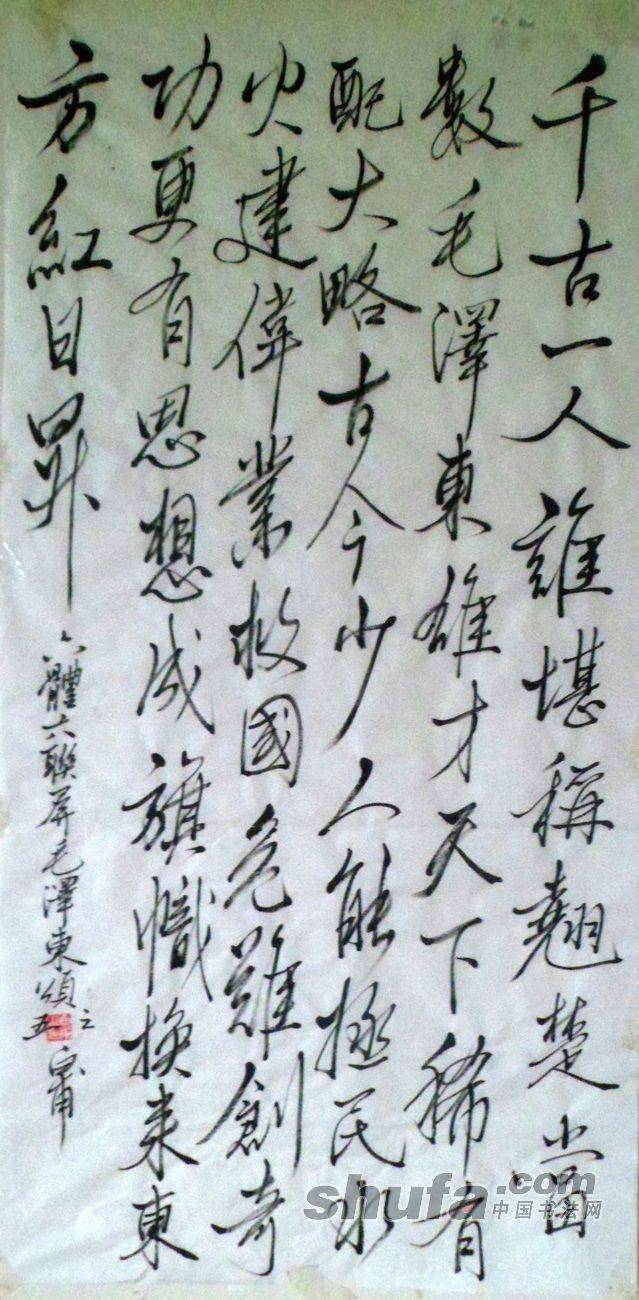 千古一人誰堪稱翹楚當
數毛澤東雄才天下稀有
配大略古今少人能拯民水
火建偉業救國危難創奇
功更有思想成旗幟換來東
方紅日昇
六體六聯屏毛澤東頌之五
shufa.com
中国书法网